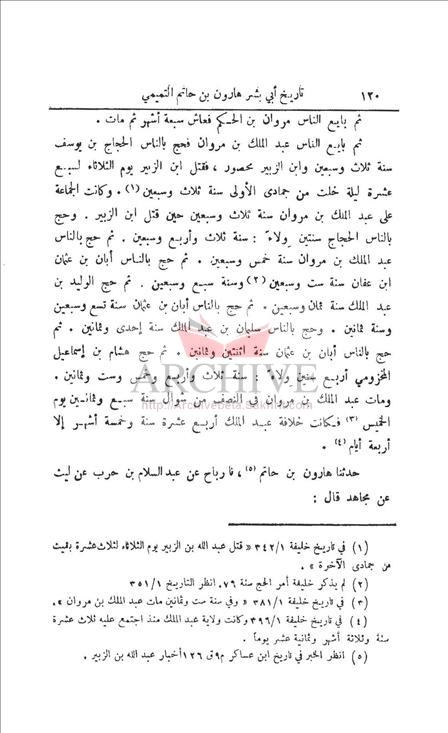 ١٢٠ تاريخ أبي بشر هارون بن حاتم التميمي
ثم بايع الناس مروان بن الحكم فعاش سبعة أشهر ثم مات .
ثم بايع الناس عبد الملك بن مروان فحج بالناس الحجاج بن يوسف
سنة ثلاث وسبعين وابن الزبير محصور ، فقتل ابن الزبير يوم الثلاثاء لسبع
عشرة ليلة خلت من جمادى الأولى سنة ثلاث وسبعين (١) . وكانت الجماعة
على عبد الملك بن مروان سنة ثلاث وسبعين حين قتل ابن الزبير . وحج
بالناس الحجاج سنتين ولاءً : سنة ثلاث وأربع وسبعين . ثم حج بالناس
عبد الملك بن مروان سنة خمس وسبعين . ثم حج بالناس أبان بن عثمان
ابن عفان سنة ست وسبعين (٢) وسنة سبع وسبعين . ثم حج الوليد بن
عبد الملك سنة ثمان وسبعين . ثم حج بالناس أبان بن عثمان سنة تسع وسبعين
وسنة ثمانين . وحج بالناس سليمان بن عبد الملك سنة إحدى وثمانين . ثم
حج بالناس أبان بن عثمان سنة اثنتين وثمانين . ثم حج هشام بن إسماعيل
المخزومي أربع سنين ولاءً : سنة ثلاث وأربع وخمس وست وثمانين .
ARCHIVE
ومات عبد الملك بن مروان في النصف من شوال سنة سبع وثمانين يوم
http://Archivebeta.Sakhrit.com
الخميس (٣) فكانت خلافة عبد الملك أربع عشرة سنة وخمسة أشهر إلا
أربعة أيام (٤) .
حدثنا هارون بن حاتم (٥) ، نا رباح عن عبد السلام بن حرب عن ليث
عن مجاهد قال :
(١) في تاريخ خليفة ٣٤٢/١ « قتل عبد الله بن الزبير يوم الثلاثاء لثلاث عشرة بقيت
من جمادى الآخرة » .
(٢) لم يذكر خليفة أمر الحج سنة ٧٦. انظر التاريخ ٣٥١/١
(٣) في تاريخ خليفة ٣٨١/١ « وفي سنة ست وثمانين مات عبد الملك بن مروان » .
(٤) في تاريخ خليفة ٣٩٦/١ وكانت ولاية عبد الملك منذ اجتمع عليه ثلاث عشرة
سنة وثلاثة أشهر وثمانية عشر يوماً .
(٥) انظر الخبر في تاريخ ابن عساكر م٩ق ١٢٦ أخبار عبد الله بن الزبير .